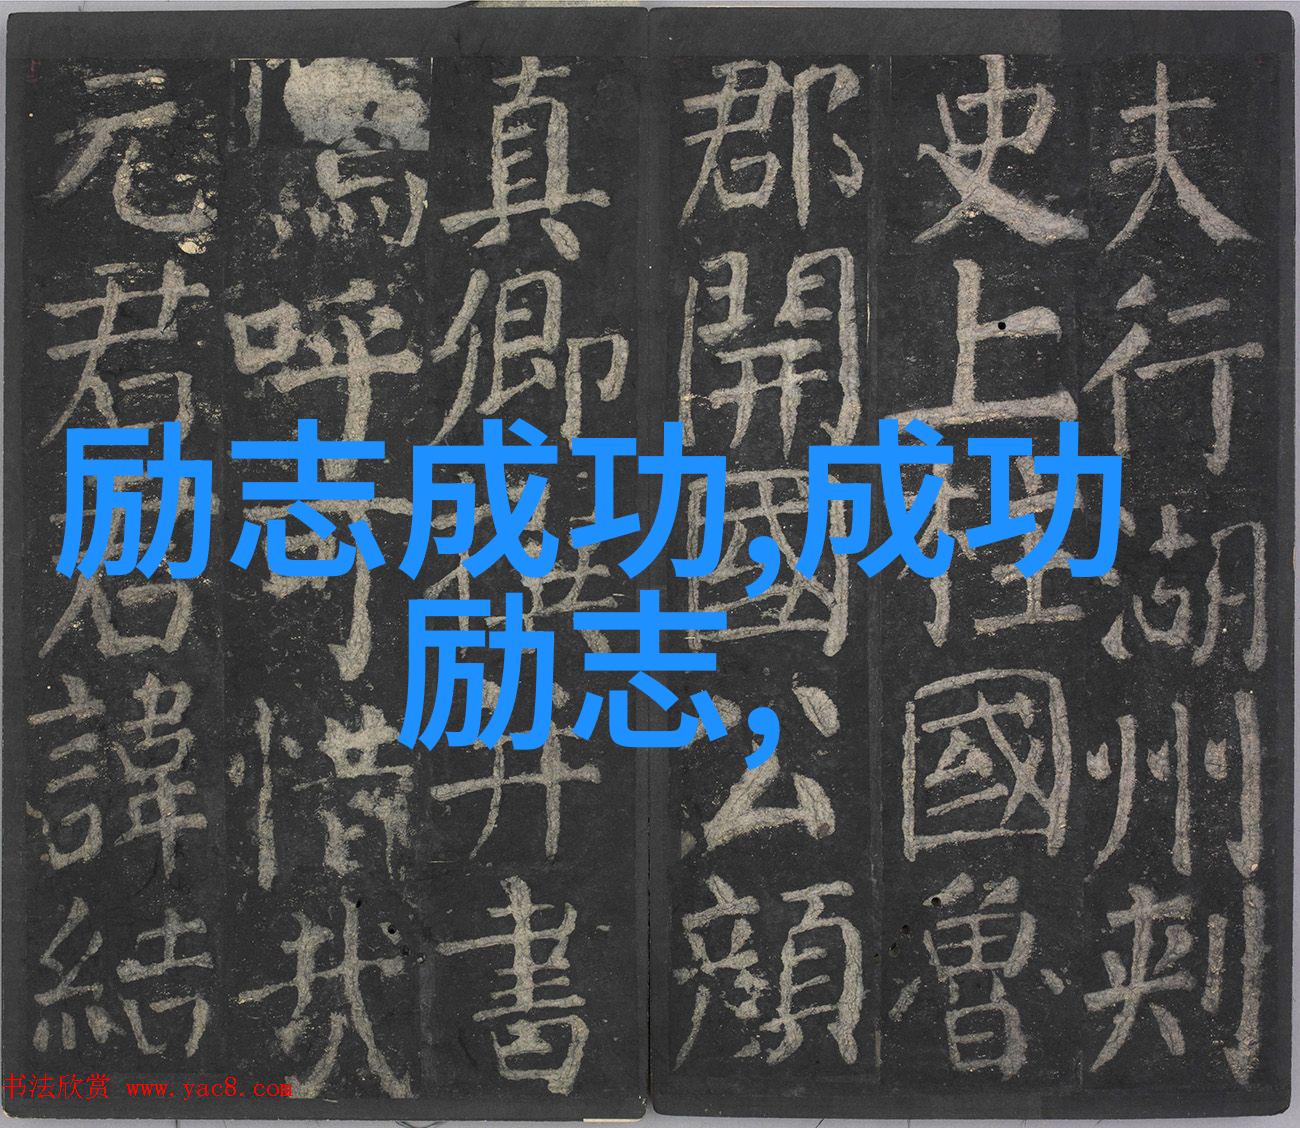 夫行湖州刺
史上柱國魯
郡開國公顏
真卿撰并書
嗚呼可惜哉
元君君諱結
励志成功,成功
励志,
书法欣赏 www.yac8.com